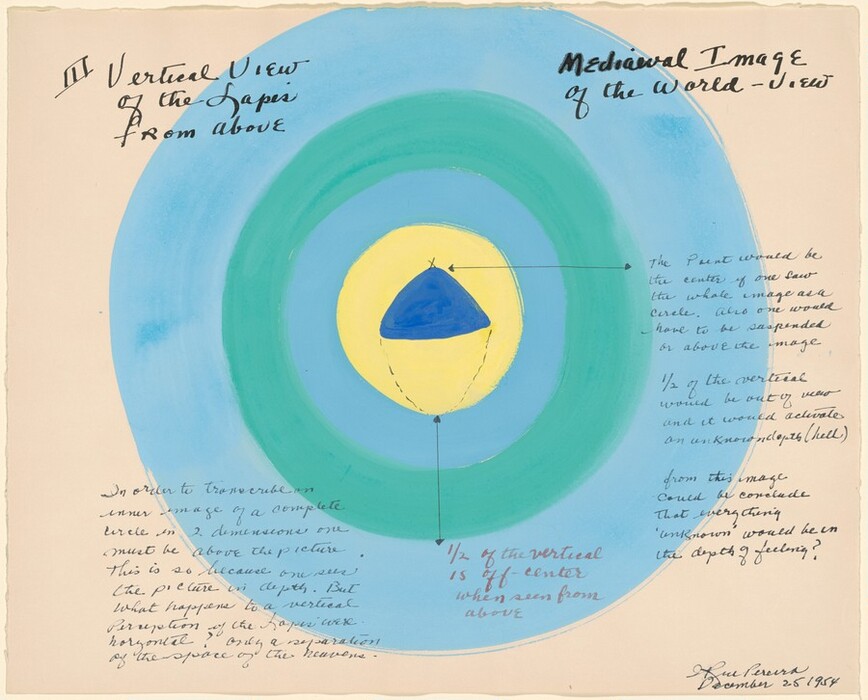 III Vertical View
of the Lapis
From above
Mediaeval Image
of the World-View
The Point would be
the center if one saw
the whole image as a
circle. Also one would
have to be suspended
or above the image
1/2 of the vertical
would be out of view
and it would activate
an unknown depth (hell)
from this image
could be conclude
that everything
"unknown" would be in
the depth of feeling?
In order to transcribe an
inner image of a complete
circle in 2 dimensions one
must be above the picture.
This is so because one sees
the picture in depth. But
what happens to a vertical
Perception if the Lapis were
horyontal? Only a separation
of the space of the heavens.
1/2 of the vertical
is off-center
when seen from
above
I Rice Pereira
December 25 1954